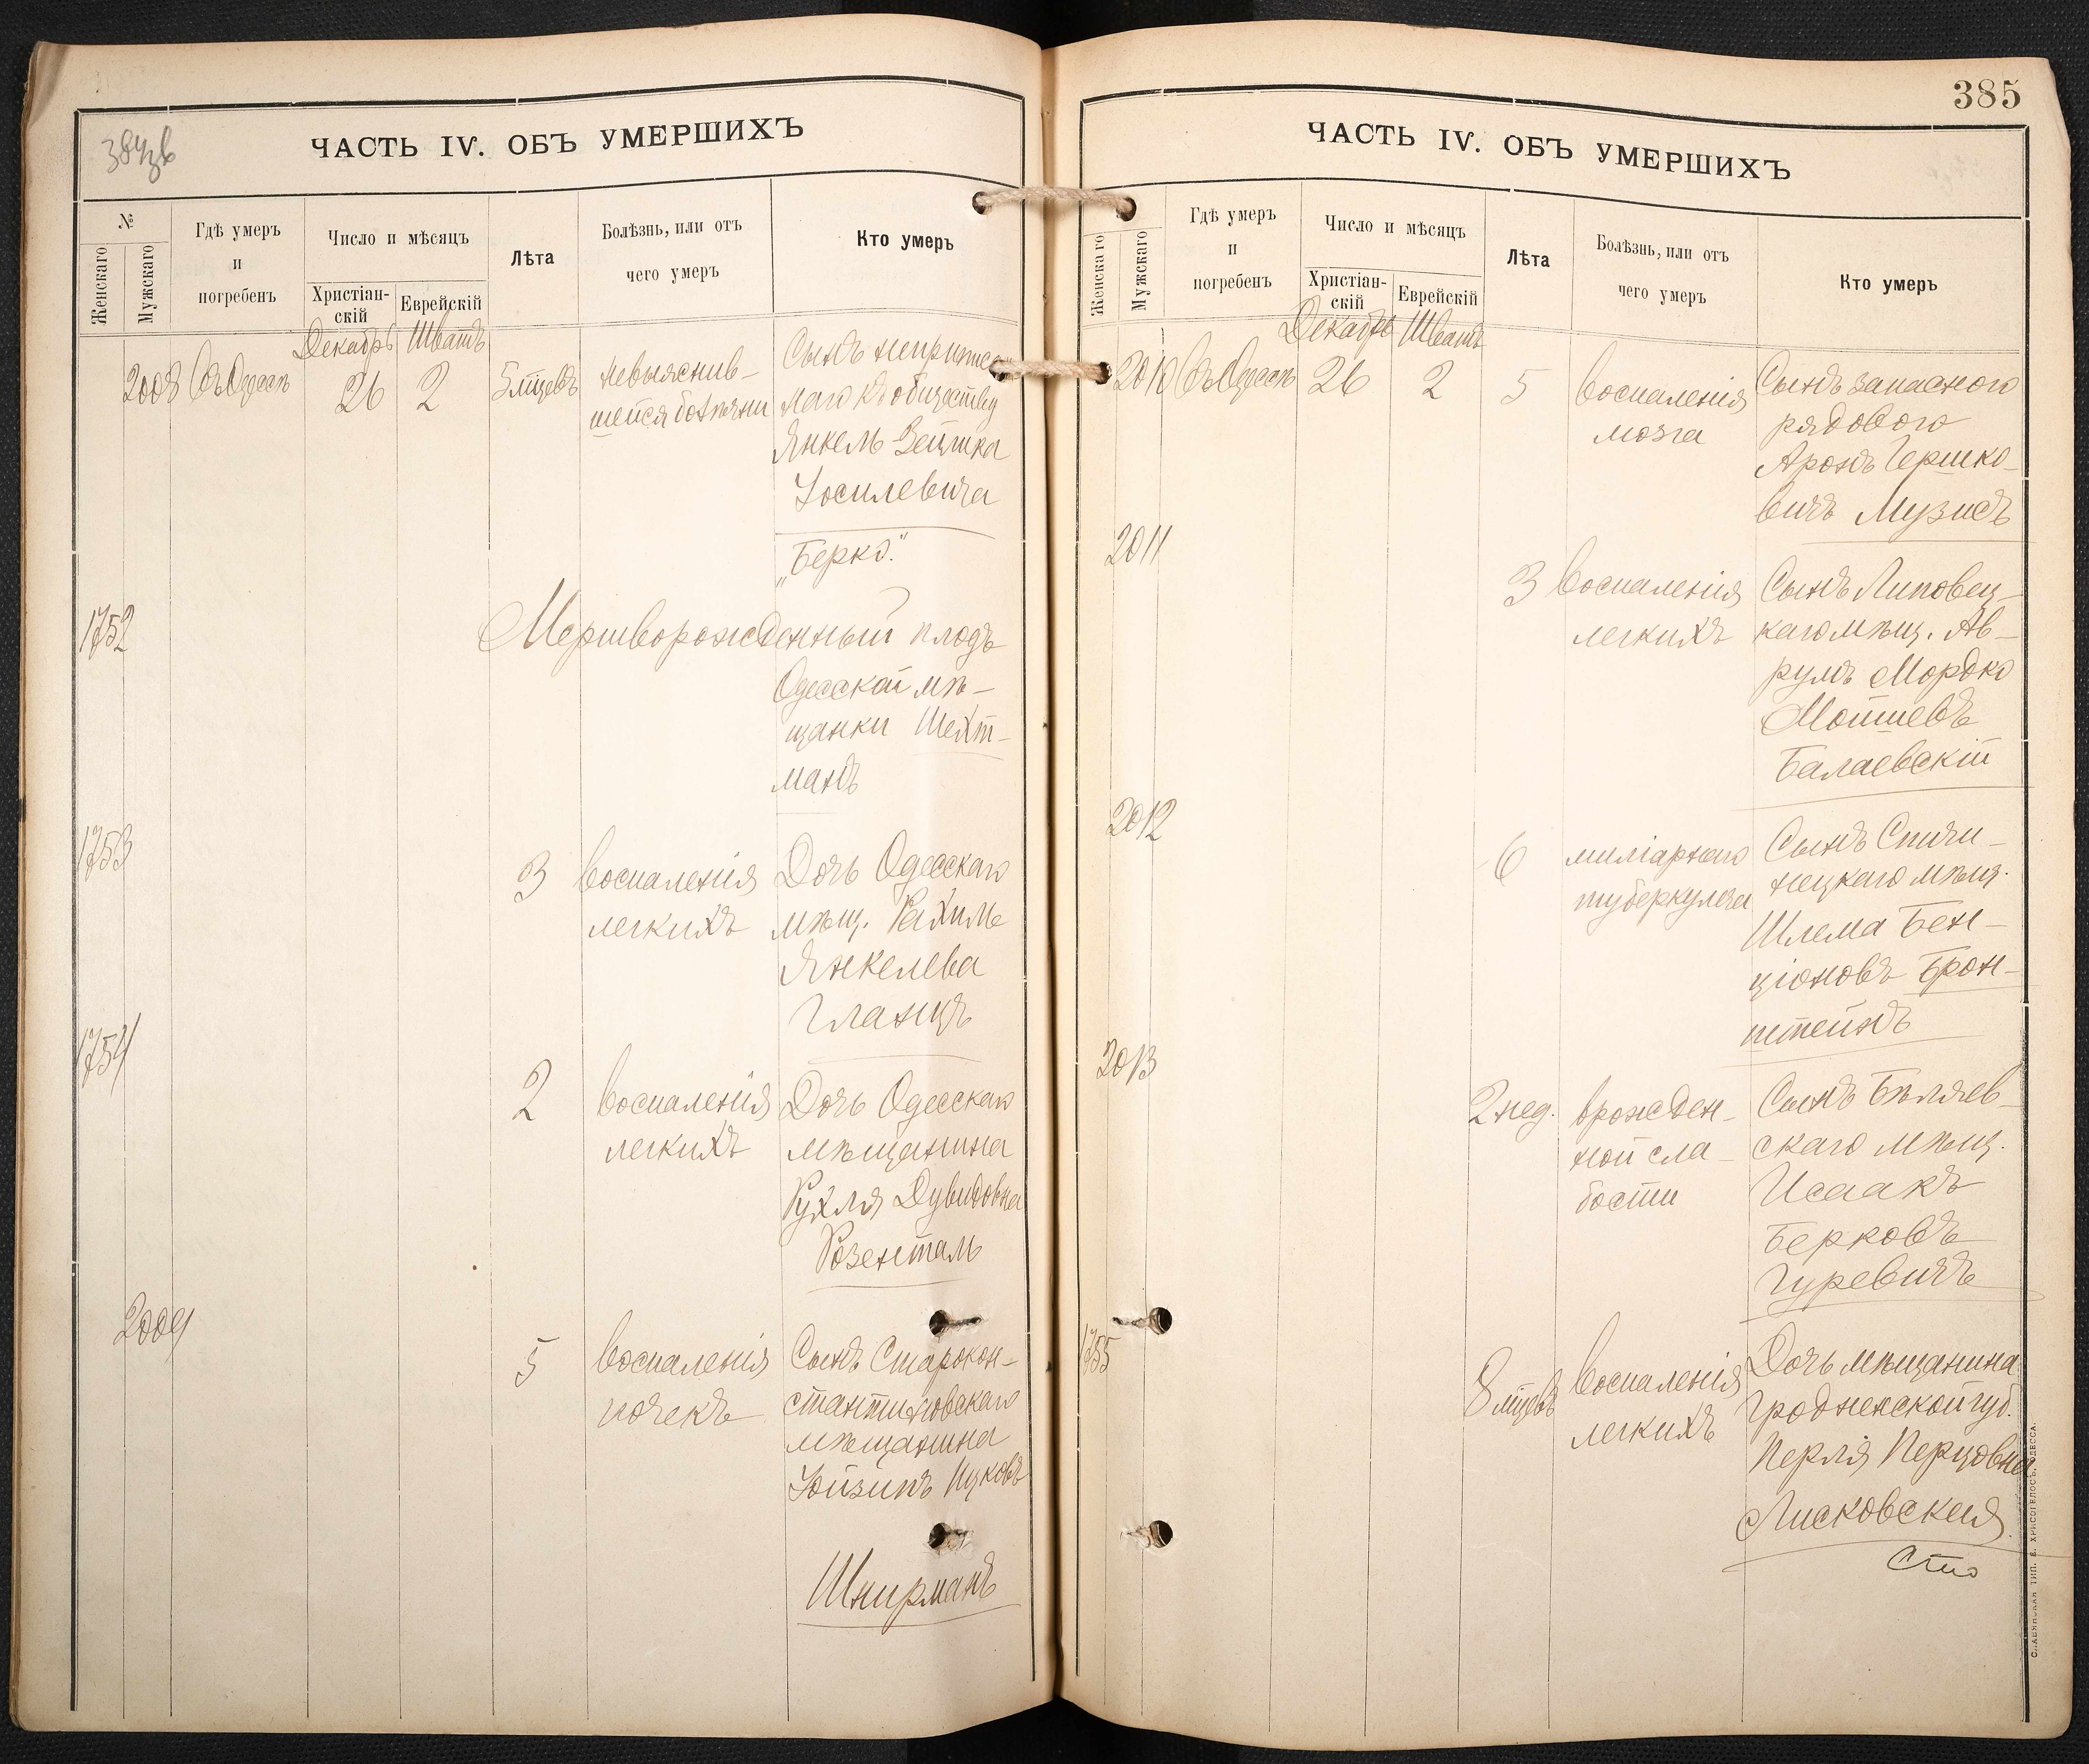 384 зв
ЧАСТЬ IV. ОБЪ УМЕРШИХЪ
№
Женскаго
Мужскаго
Гдѣ умеръ
и
погребенъ
Число и мѣсяцъ
Христіан-
скій
Еврейскій
Лѣта
Болѣзнь, или отъ
чего умеръ
Кто умеръ
Декабрь Шватъ
2008 Въ Одессѣ 26 2 5 мцевъ
невыяснив-
шейся болѣзни
Сынъ неприписан
наго къ обществу
Янкель Зейлика
Іосилевича
„Берко."
1752
Мертворожденный плодъ
Одесской мѣ-
щанки Шехт-
манъ
1753
3
воспаленія
легкихъ
Дочь Одесскаго
мѣщ. Рахиль
Янкелева
Гланцъ
1754
2
воспаленія
легкихъ
Дочь Одесскаго
мѣщанина
Рухля Дувидовна
Розенталь
2009
5
воспаленія
почекъ
Сынъ Старокон-
стантиновскаго
мѣщанина
Іойзипъ Ицковъ
Шнирманъ
385
ЧАСТЬ IV. ОБЪ УМЕРШИХЪ
Женскаго
Мужскаго
Гдѣ умеръ
и
погребенъ
Число и мѣсяцъ
Христіан-
скій
Еврейскій
Лѣта
Болѣзнь, или отъ
чего умеръ
Кто умеръ
Декабрь Шватъ
2010 Въ Одессѣ 26 2 5
воспаленія
мозга
Сынъ запаснаго
рядового
Аронъ Гершко-
вичъ Музисъ
2011
3
воспаленія
легкихъ
Сынъ Липовец-
каго мѣщ. Ав-
румъ Мордко
Мошиевъ
Балаевскій
2012
6
миліарнаго
туберкулеза
Сынъ Спичи-
нецкаго мѣщ.
Шлема Бен-
ціоновъ Брон-
штейнъ
2013
2 нед.
врожден-
ной сла-
бости
Сынъ Бѣляев-
скаго мѣщ.
Исаакъ
Берковъ
Гуревичъ
1755
8 мцевъ
воспаленія
легкихъ
Дочь мѣщанина
Гродненской губ.
Перля Перцовна
Лисковская.
СЛАВЯНСКАЯ ТИП. Е. ХРИСОГЕЛОСЪ, ОДЕССА.